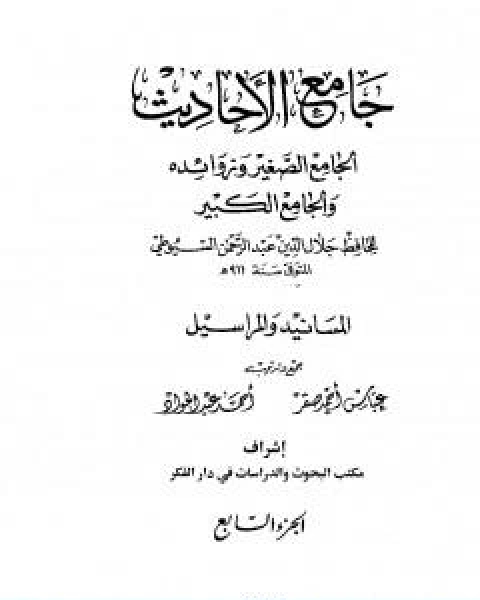 جَامِعُ الأَحَادِيث
الجَامِعُ الصَّغِيرِ وَزَوَائِدِه
وَالجَامِعُ الكَبِير
لِلحَافِظ جَلَالِ الدِّين عَبدِ الرَّحمٰن السُّيُوطِي
المتوفى سنة ٩١١ هـ
المسانيد والمراسيل
جمع وترتيب
عباس أحمد صقر أحمد عبد الجواد
إشراف
مكتب البحوث والدراسات في دار الفكر
الجزء السابع